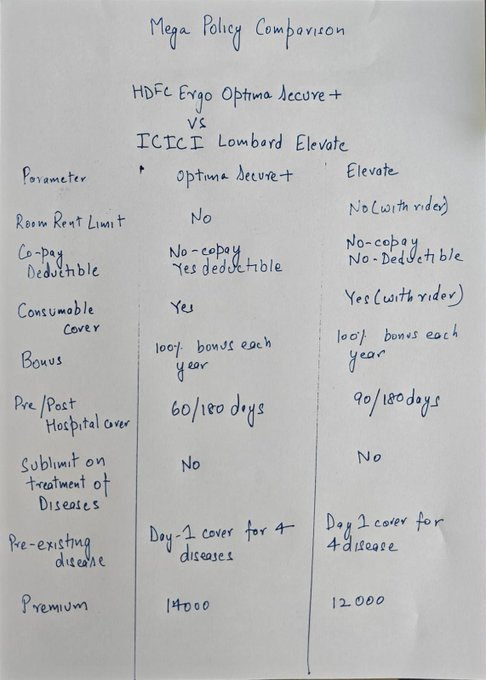 Mega Policy Comparison
HDFC Ergo Optima Secure+
vs
ICICI Lombard Elevate
Parameter Optima Secure+ Elevate
Room Rent Limit No No (with rider)
Co-pay No-copay No-copay
Deductible Yes deductible No-Deductible
Consumable Yes Yes (with rider)
cover
Bonus 100% bonus each 100% bonus each
year year
Pre/Post 60/180 days 90/180 days
Hospital cover
Sublimit on No No
treatment of
Diseases
Pre-existing Day-1 cover for 4 Day 1 cover for
disease diseases 4 disease
Premium 14000 12000